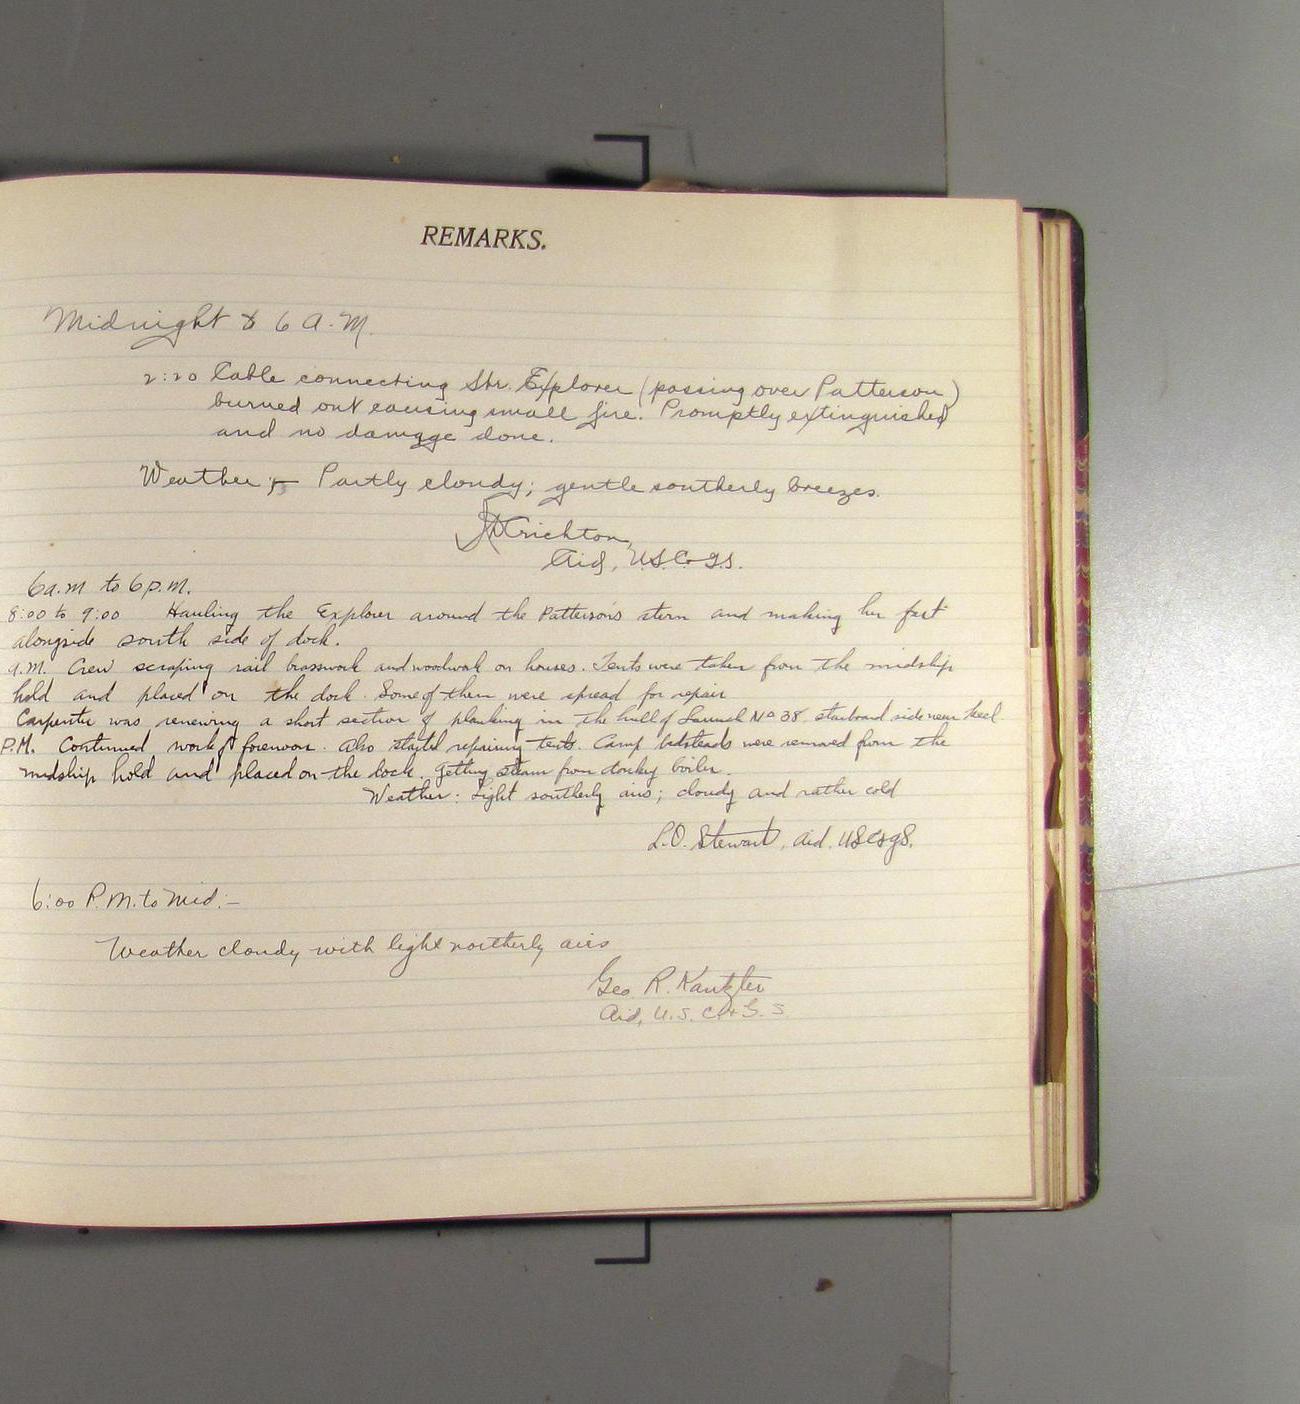 REMARKS.
Midnight to 6 A.M.
2:20 Cable connecting Str. Explorer (passing over Patterson)
burned out causing small fire. Promptly extinguished
and no damage done.
Weather:- Partly cloudy; gentle southerly breezes.
Crichton,
Aid, U.S.C.&G.S.
6 a.m to 6 p.m.
8:00 to 9:00 Hauling the Explorer around the Patterson's stern and making her fast
alongside south side of dock.
A.M. Crew scraping rail brasswork and woodwork on houses. Tents were taken from the midship
hold and placed on the dock. Some of them were spread for repair
Carpenter was renewing a short section of planking in the hull of Launch No 38. starboard side near keel.
P.M. Continued work of forenoon. Also started repairing tents. Camp bedsteads were removed from the
midship hold and placed on the dock. Getting steam from donkey boiler.
Weather: Light southerly airs; cloudy and rather cold
L.O. Stewart, Aid, USC&GS.
6:00 P.M. to Mid:-
Weather cloudy with light northerly airs
Geo. R. Kantzler
Aid, U.S. C. & G. S.